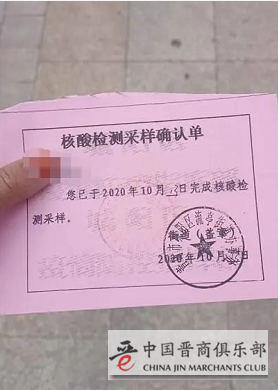 核酸检测采样确认单
您已于2020年10月12日完成核酸检
测采样。
2020年10月12日
中国晋商俱乐部
CHINA JIN MARCHANTS CLUB